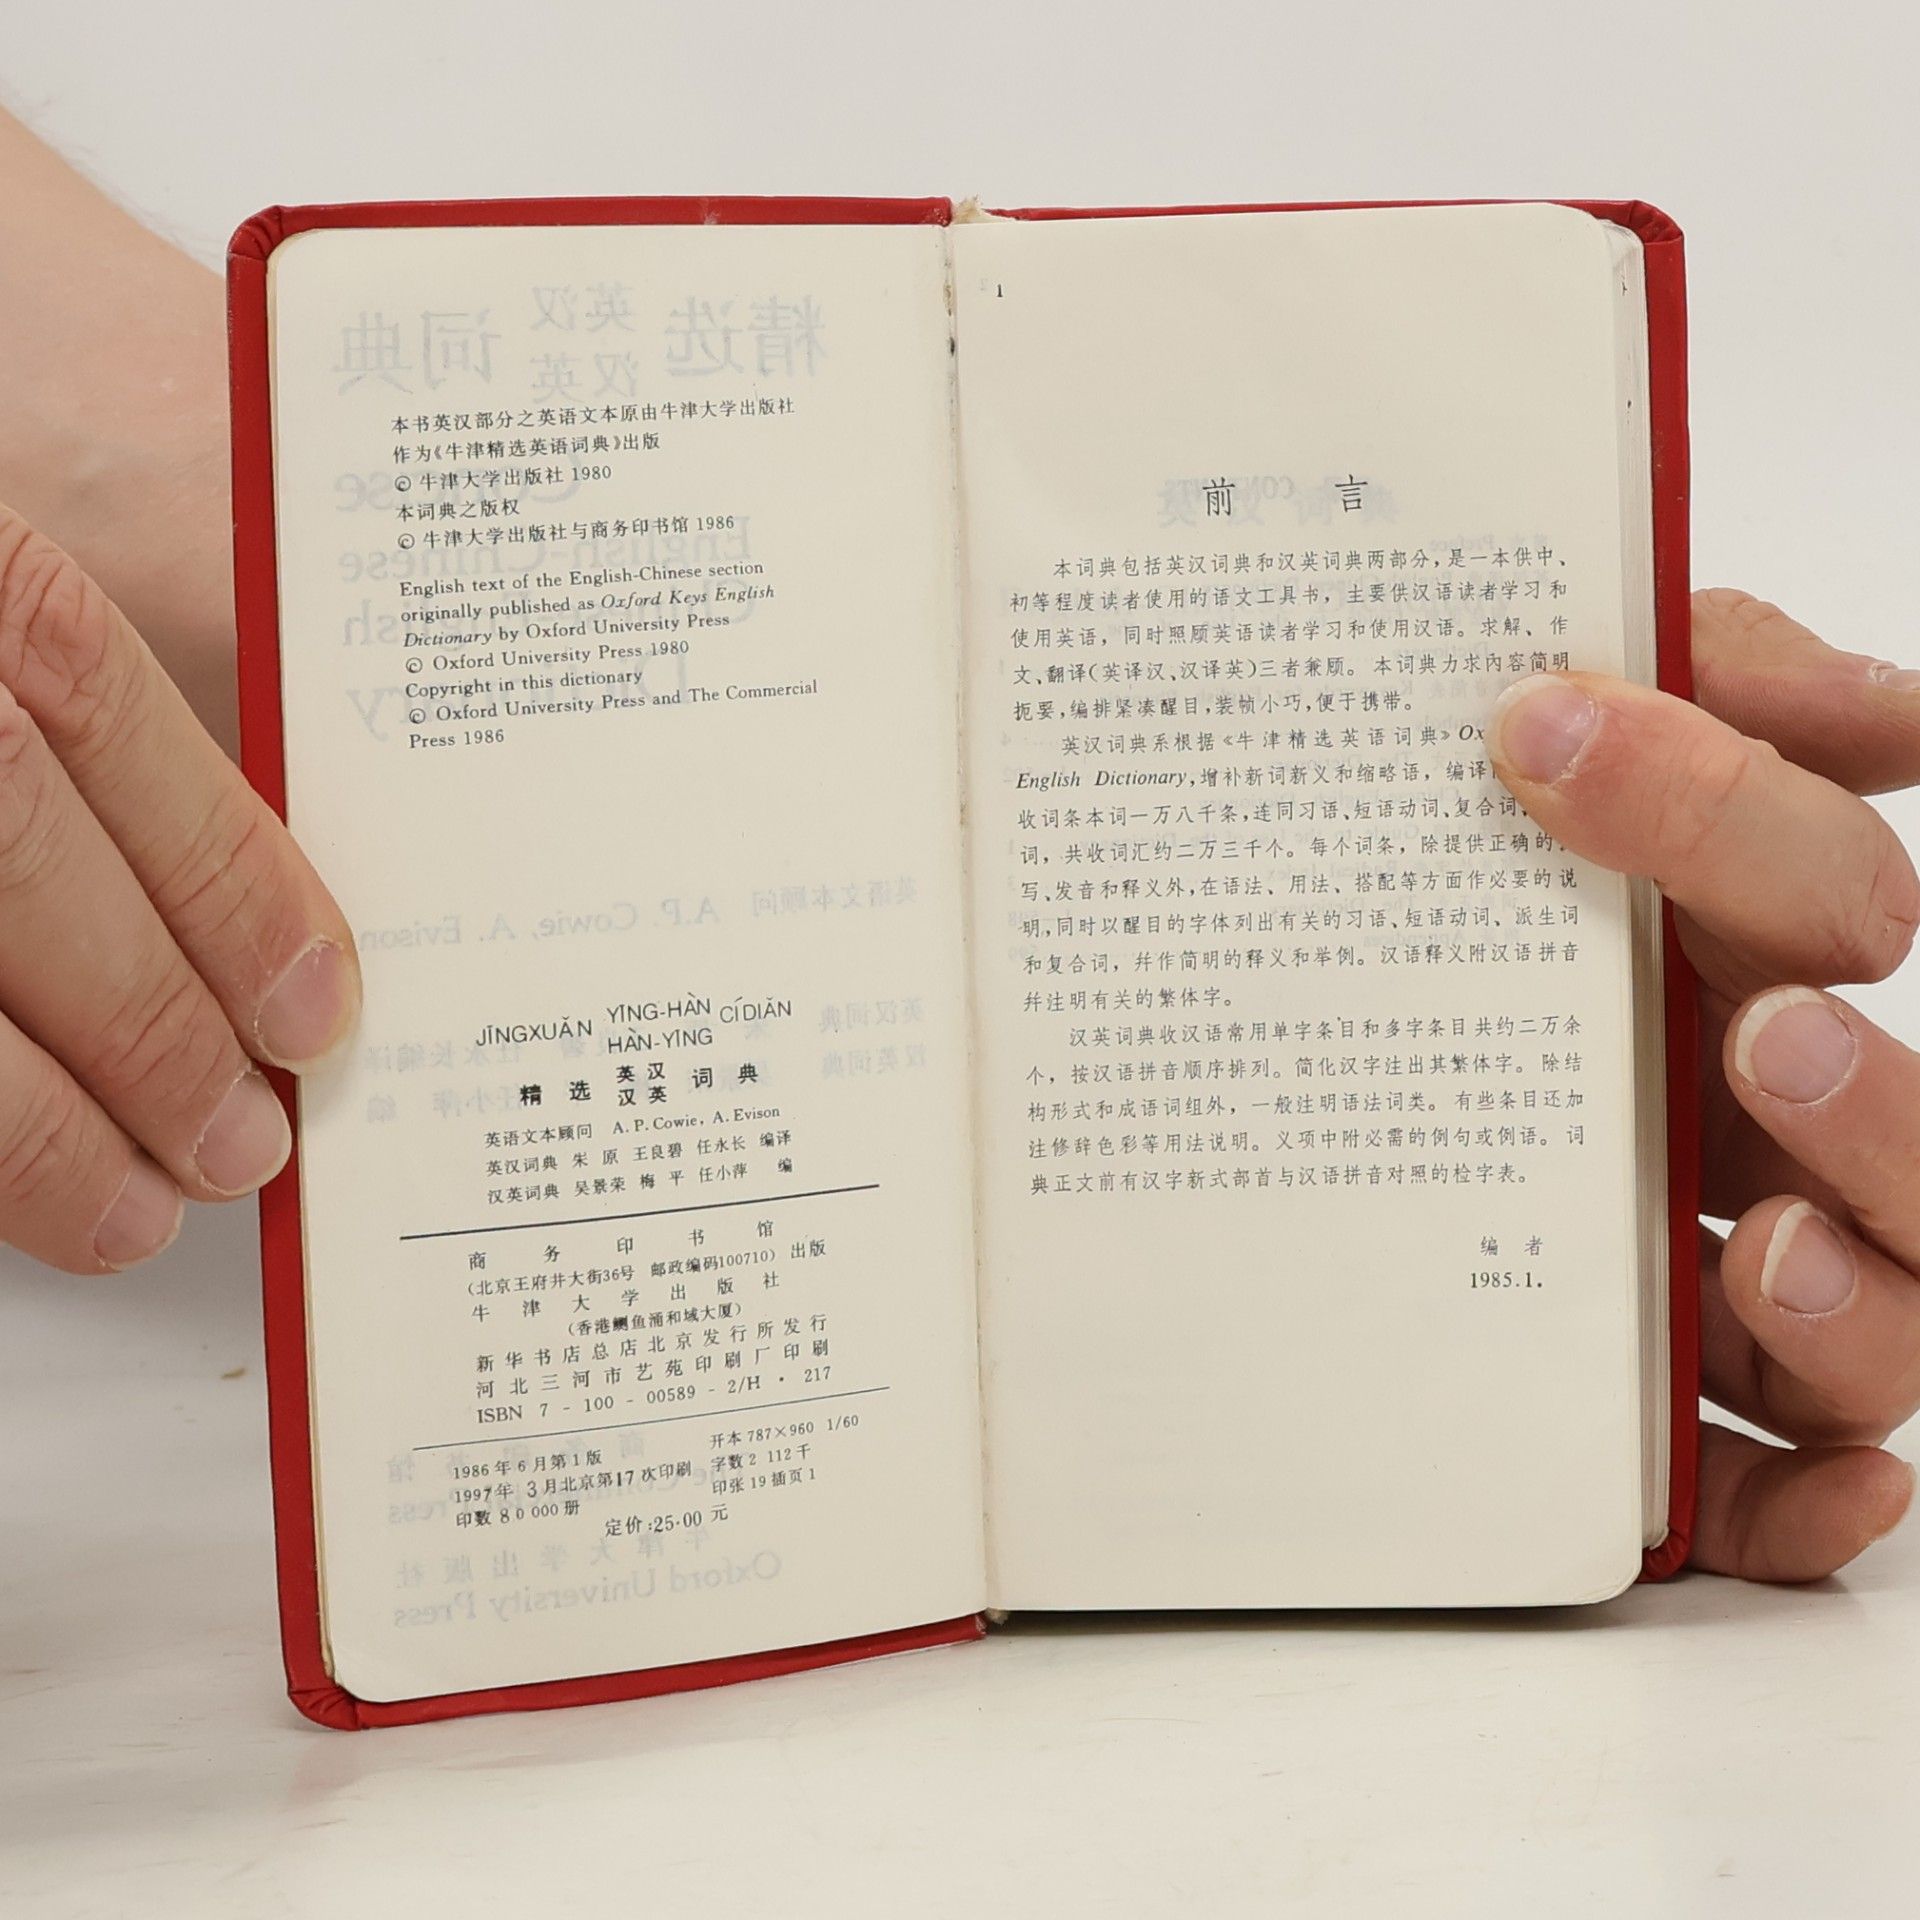 本书英汉部分之英语文本原由牛津大学出版社
作为《牛津精选英语词典》出版
© 牛津大学出版社 1980
本词典之版权
© 牛津大学出版社与商务印书馆 1986
English text of the English-Chinese section
originally published as Oxford Keys English
Dictionary by Oxford University Press
© Oxford University Press 1980
Copyright in this dictionary
© Oxford University Press and The Commercial
Press 1986
JĪNGXUǍN YĪNG-HÀN HÀN-YĪNG CÍDIǍN
精 选 英汉 汉英 词 典
英语文本顾问 A.P.Cowie, A.Evison
英汉词典 朱 原 王良碧 任永长 编译
汉英词典 吴景荣 梅 平 任小萍 编
商 务 印 书 馆
(北京王府井大街36号 邮政编码100710) 出版
牛 津 大 学 出 版 社
(香港鲗鱼涌和域大厦)
新华书店总店北京发行所发行
河北三河市艺苑印刷厂印刷
ISBN 7-100-00589-2/H·217
1986年6月第1版 开本 787×960 1/60
1997年 3月北京第17次印刷 字数 2 112千
印数 80 000册 印张 19 插页 1
定价:25.00 元
1
前 言
本词典包括英汉词典和汉英词典两部分,是一本供中、
初等程度读者使用的语文工具书,主要供汉语读者学习和
使用英语,同时照顾英语读者学习和使用汉语。求解、作
文、翻译(英译汉、汉译英)三者兼顾。本词典力求内容简明
扼要,编排紧凑醒目,装帧小巧,便于携带。
英汉词典系根据《牛津精选英语词典》
English Dictionary,增补新词新义和缩略语,编译
收词条本词一万八千条,连同习语、短语动词、复合词、
词,共收词汇约二万三千个。每个词条,除提供正确的
写、发音和释义外,在语法、用法、搭配等方面作必要的说
明,同时以醒目的字体列出有关的习语、短语动词、派生词
和复合词,并作简明的释义和举例。汉语释义附汉语拼音
并注明有关的繁体字。
汉英词典收汉语常用单字条目和多字条目共约二万余
个,按汉语拼音顺序排列。简化汉字注出其繁体字。除结
构形式和成语词组外,一般注明语法词类。有些条目还加
注修辞色彩等用法说明。义项中附必需的例句或例语。词
典正文前有汉字新式部首与汉语拼音对照的检字表。
编 者
1985.1.